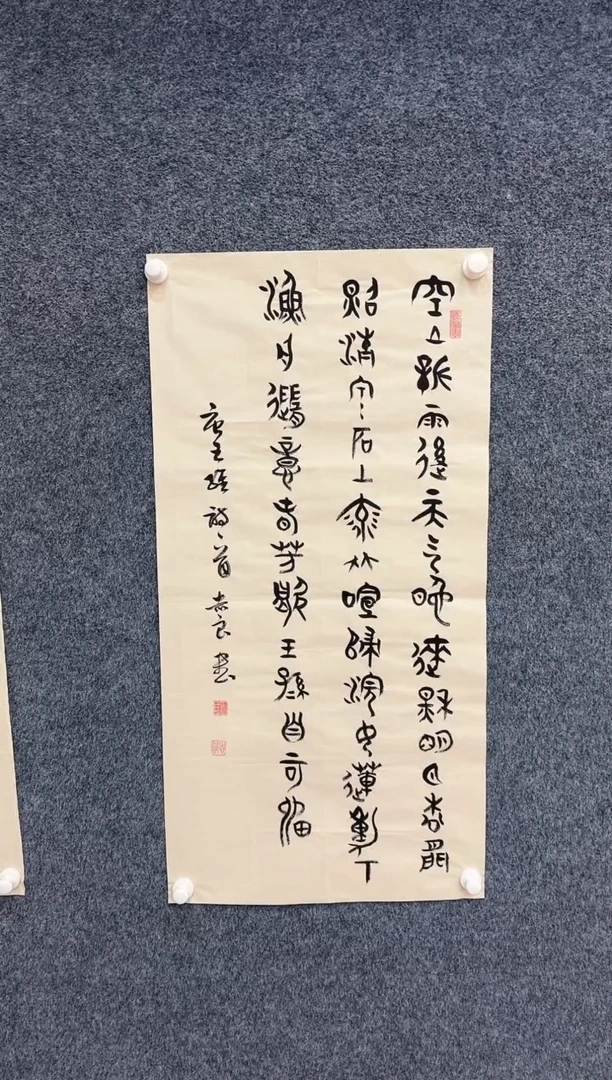 空山新雨後天气晚來秋明月松間
照清泉石上流竹喧歸浣女蓮動下
漁舟隨意春芳歇王孫自可留
唐王維詩一首 良書